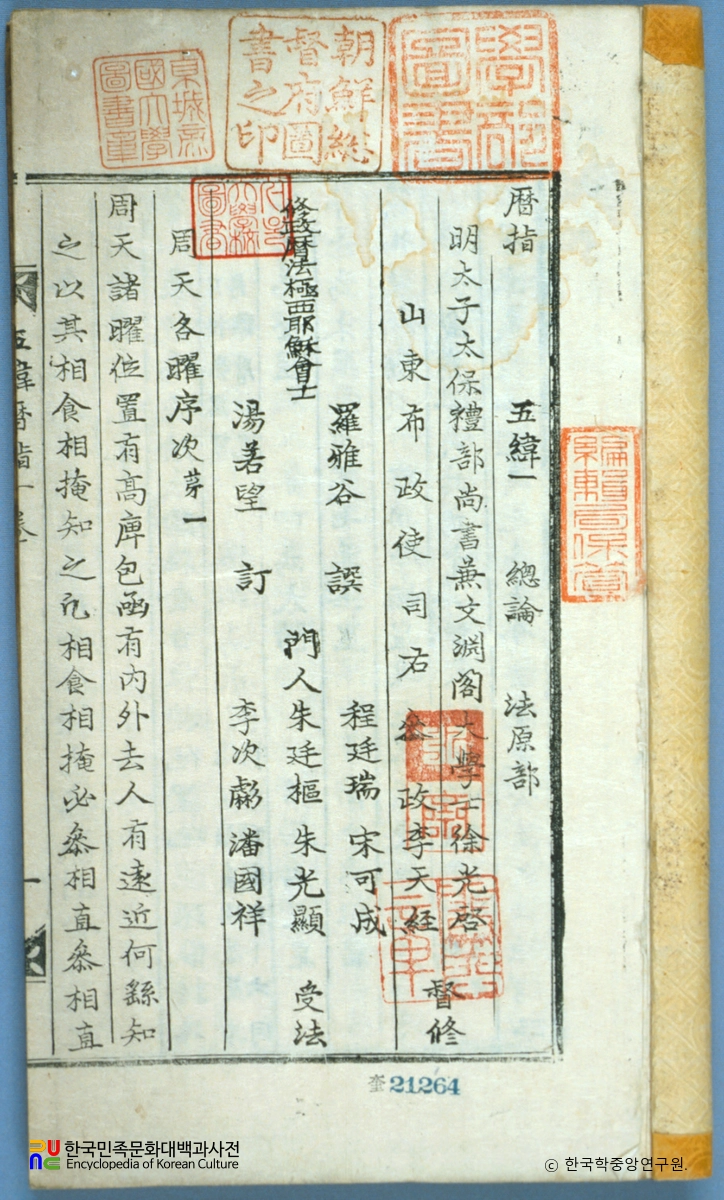 朝鮮總督府圖書之印
編輯局保管
曆指 五緯一 總論 法原部
明太子太保禮部尚書兼文淵閣大學士徐光啓
山東布政使司右叅政李天經 督修
修政曆法極西耶穌會士
羅雅谷 譔
湯若望 訂
程廷瑞 宋可成
門人朱廷樞 朱光顯 受法
李次虨 潘國祥
周天各曜序次第一
周天諸曜位置有高庳包函有內外去人有遠近何繇知
之以其相食相掩知之凡相食相掩必叅相直叅相直
五緯曆指一卷
一
奎21264
한국민족문화대백과사전
Encyclopedia of Korean Culture
ⓒ 한국학중앙연구원.